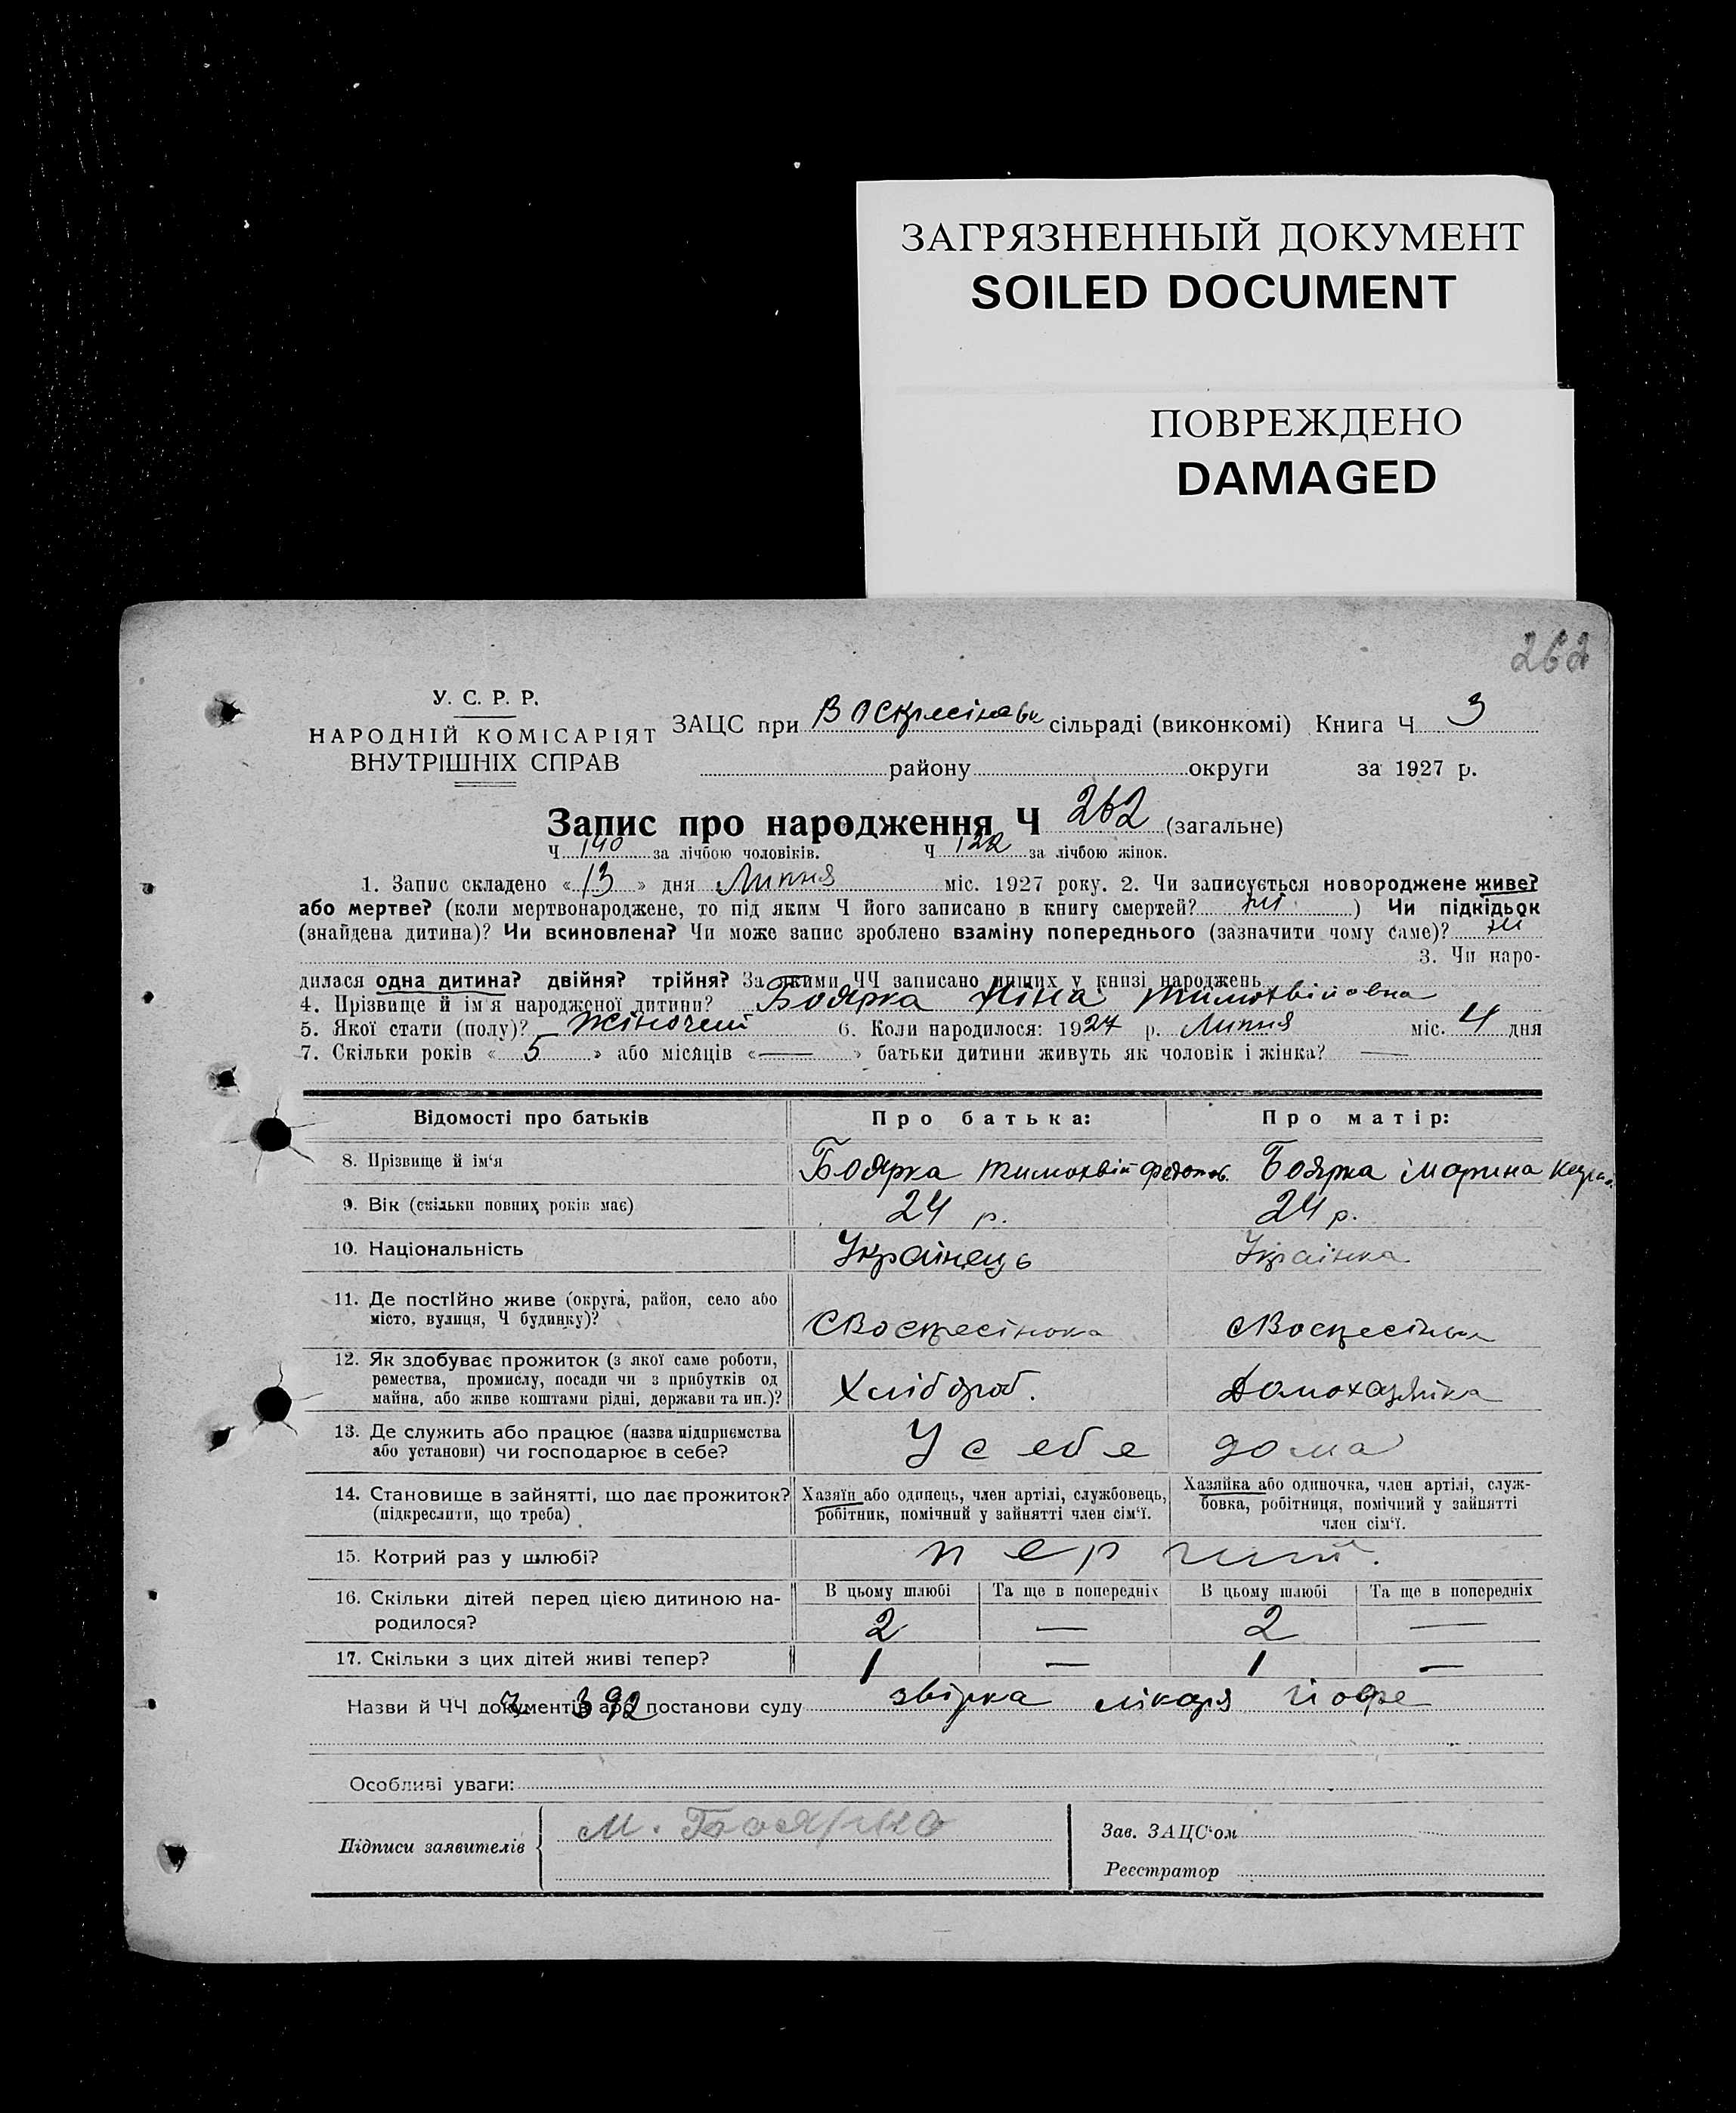 ЗАГРЯЗНЕННЫЙ ДОКУМЕНТ
SOILED DOCUMENT
ПОВРЕЖДЕНО
DAMAGED
262
У. С. Р. Р.
НАРОДНІЙ КОМІСАРІЯТ
ВНУТРІШНІХ СПРАВ
ЗАЦС при сільраді (виконкомі) Книга Ч 3
району округи за 1927 р.
Запис про народження Ч 262 (загальне)
Ч 140 за лічбою чоловіків. Ч 122 за лічбою жінок.
1. Запис складено « 13 » дня Липня міс. 1927 року. 2. Чи записується новороджене живе?
або мертве? (коли мертвонароджене, то під яким Ч його записано в книгу смертей? ні ) Чи підкідьок
(знайдена дитина)? Чи всиновлена? Чи може запис зроблено взаміну попереднього (зазначити чому саме)? ні
3. Чи наро-
дилася одна дитина? двійня? трійня? За якими ЧЧ записано инших у книзі народжень
4. Прізвище й ім'я народженої дитини? Боярка Ніна Тимохвійовна
5. Якої стати (полу)? Жіночеий 6. Коли народилося: 1927 р. Липня міс. 4 дня
7. Скільки років « 5 » або місяців « — » батьки дитини живуть як чоловік і жінка? —
Відомості про батьків Про батька: Про матір:
8. Прізвище й ім'я Боярка Тимохвій Федотов. Боярка Марина
9. Вік (скільки повних років має) 24 р. 24 р.
10. Національність Українець Українка
11. Де постійно живе (округа, район, село або
місто, вулиця, Ч будинку)? С Воскресінока С Воскресінка
12. Як здобуває прожиток (з якої саме роботи,
ремества, промислу, посади чи з прибутків од
майна, або живе коштами рідні, держави та ин.)? Хлібороб. Домохазяйка
13. Де служить або працює (назва підприємства
або установи) чи господарює в себе? У себе дома
14. Становище в зайнятті, що дає прожиток?
(підкреслити, що треба)
Хазяїн або одинець, член артілі, службовець,
робітник, помічний у зайнятті член сім'ї.
Хазяйка або одиночка, член артілі, служ-
бовка, робітниця, помічний у зайнятті
член сім'ї.
15. Котрий раз у шлюбі? перший.
В цьому шлюбі Та ще в попередніх В цьому шлюбі Та ще в попередніх
16. Скільки дітей перед цією дитиною на-
родилося? 2 — 2 —
17. Скільки з цих дітей живі тепер? 1 — 1 —
Назви й ЧЧ документів або постанови суду 392 лікаря
Особливі уваги:
Підписи заявителів М. Боярко
Зав. ЗАЦС'ом
Реєстратор